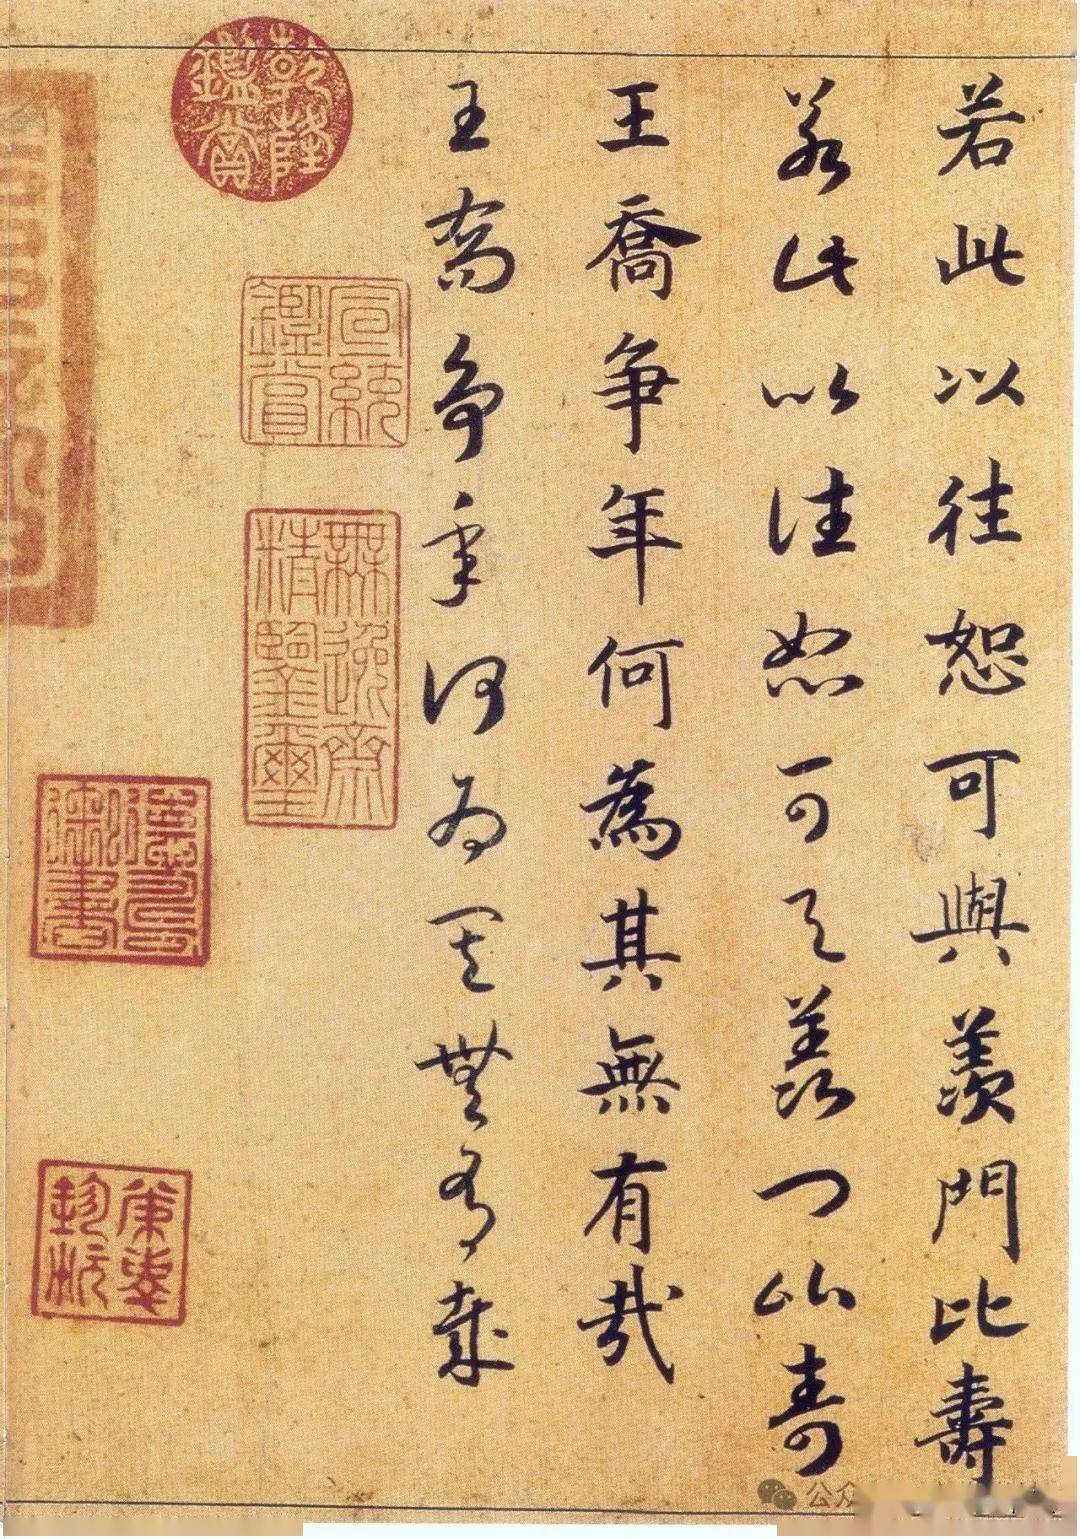 若此以往恕可與羨門比壽
若此以往恕可與羨門比壽
王喬争年何為其無有哉
王喬争年何為其無有哉
乾隆鑑賞
宣統鑑賞
無逸齋精鑒璽
公众